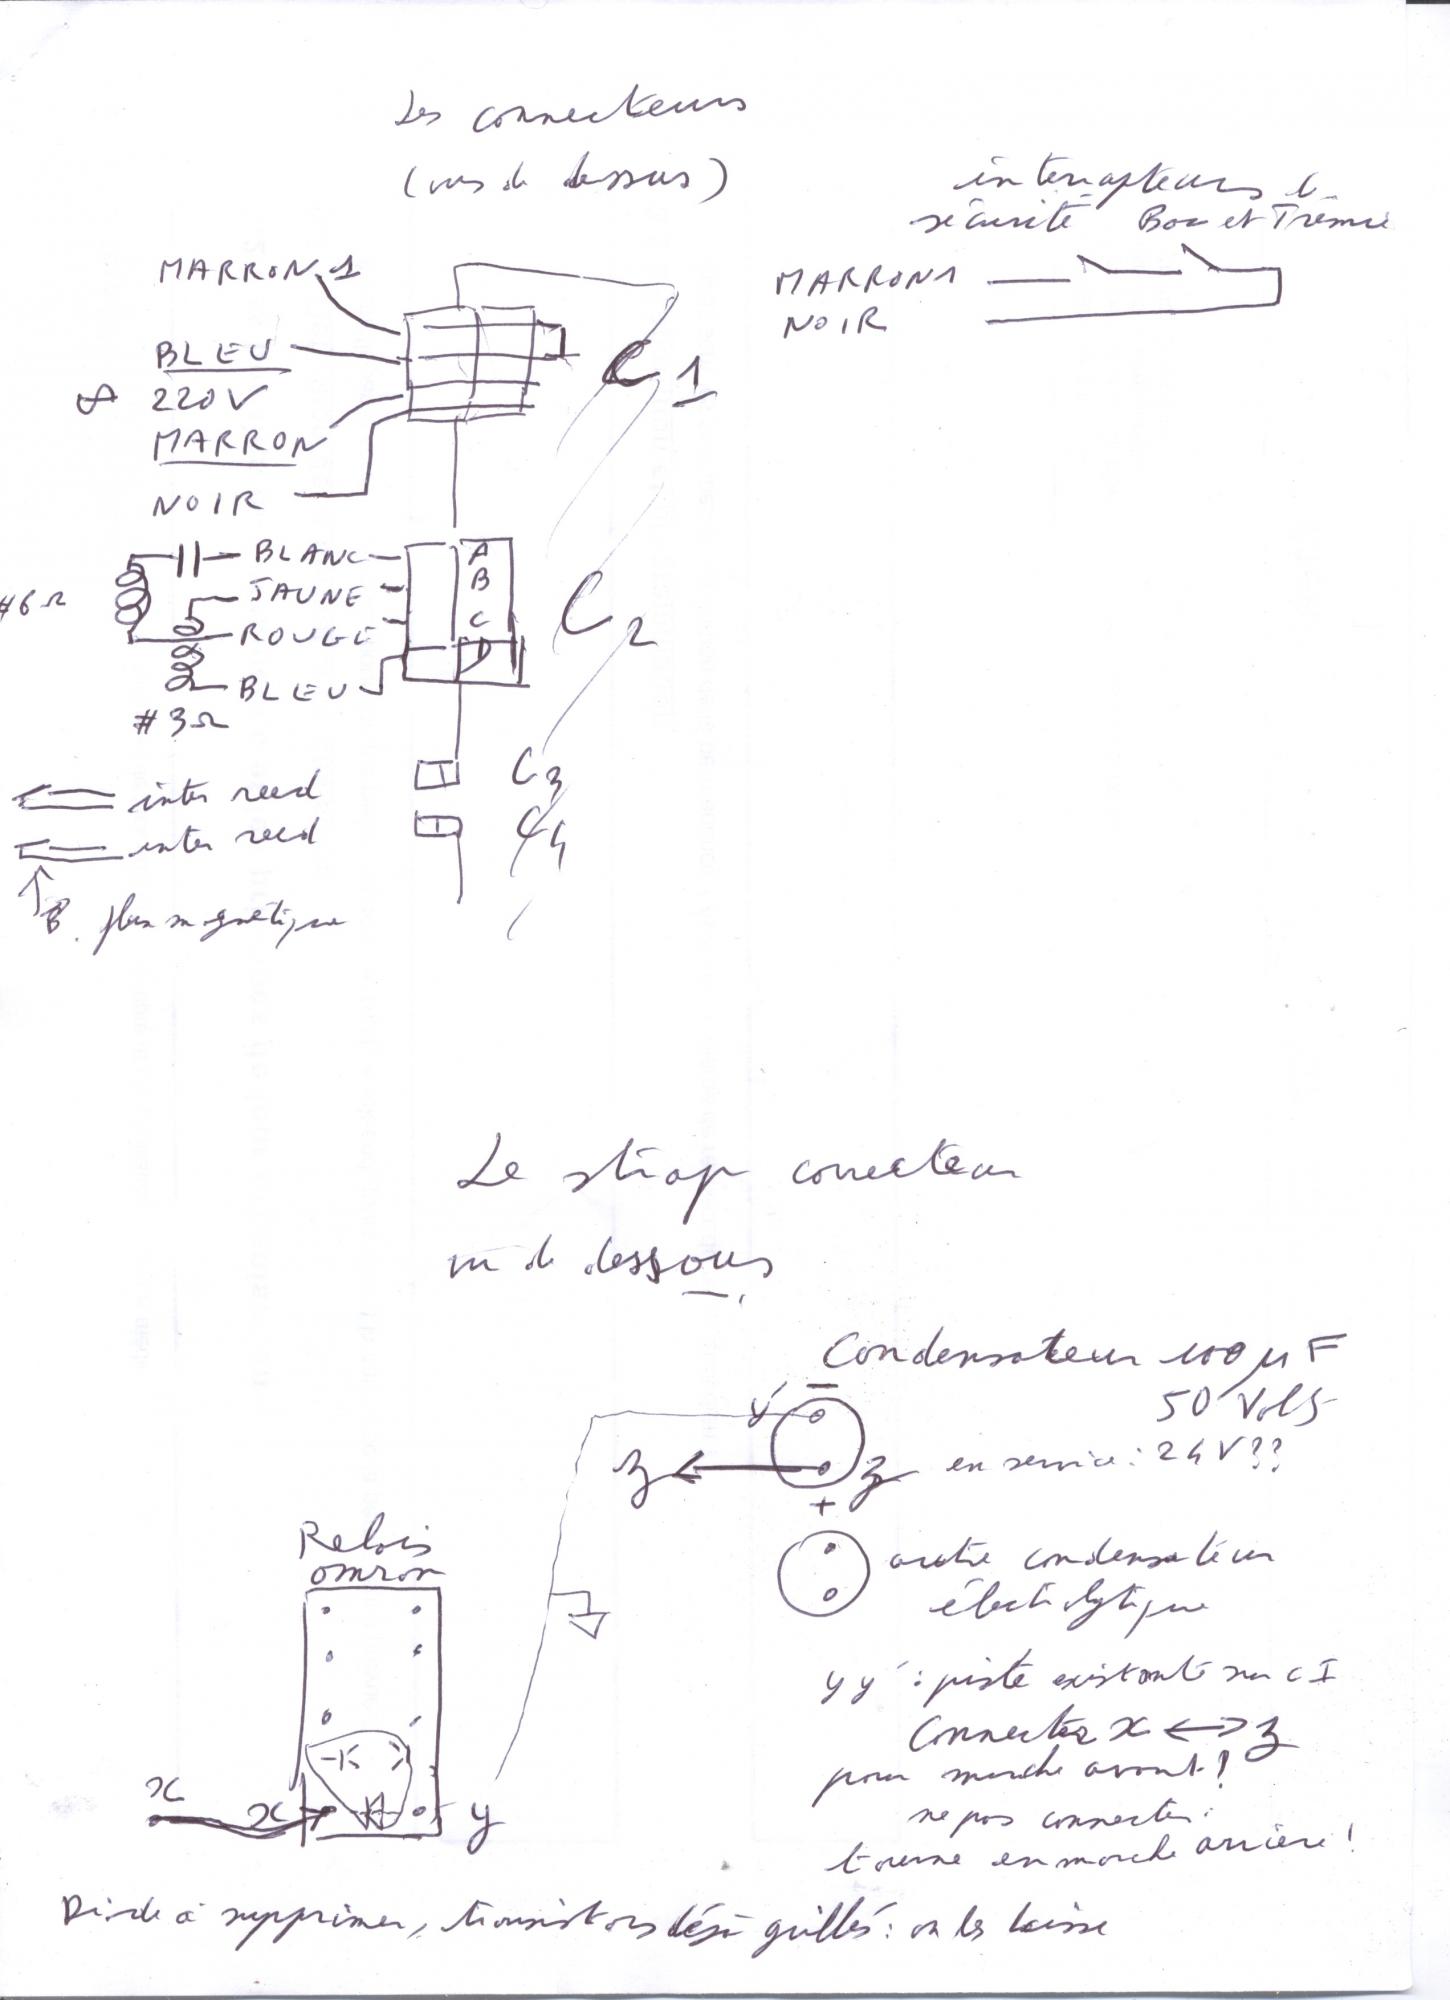 Les connecteurs
(vus de dessus)
interrupteurs de
sécurité Bac et Trémie
MARRON 1
NOIR
MARRON 1
BLEU
220V
MARRON
NOIR
C1
BLANC
JAUNE
ROUGE
BLEU
#6Ω
#3Ω
A
B
C
D
C2
inter reed
C3
inter reed
C4
B. flux magnétique
Le strap connecteur
vu de dessous
Condensateur 100 µF
50 Volts
y' -
z
z en service : 24V??
+
autre condensateur
électrolytique
Relais
omron
yy' : piste existante sur CI
Connecter x ↔ z
pour marche avant !
ne pas connecter :
tourne en marche arrière !
x
x
y
Diode à supprimer, transistors déjà grillés : on les laisse